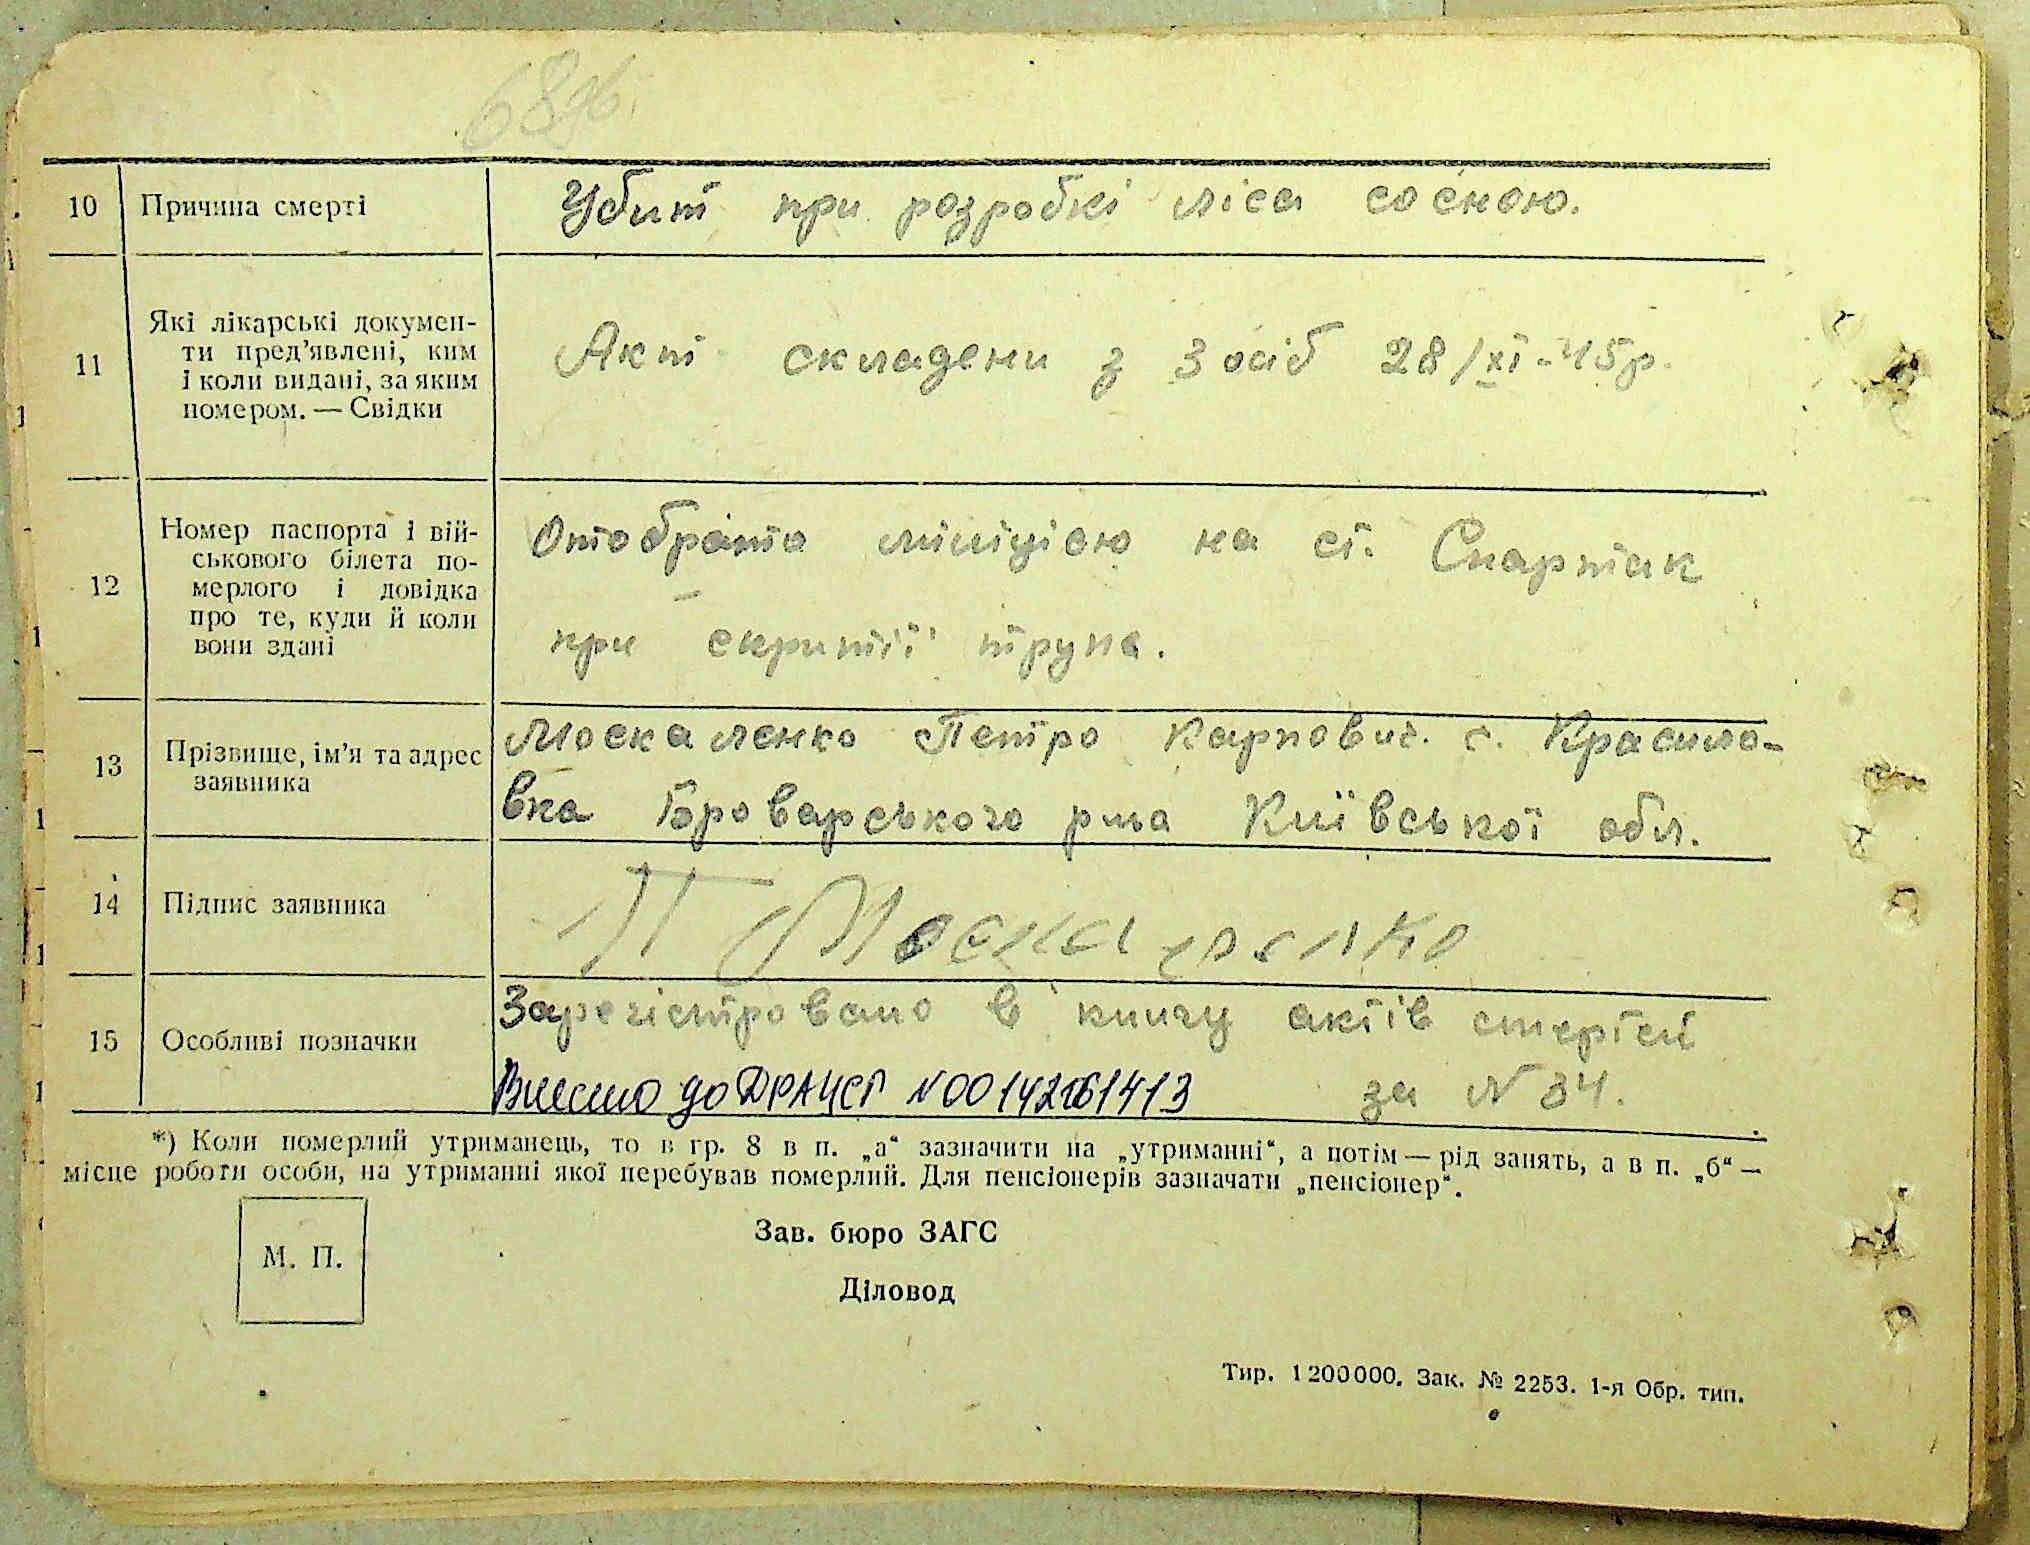 10 Причина смерті Убит при розробкі ліса сосною.
11 Які лікарські докумен-
ти пред'явлені, ким
і коли видані, за яким
номером. — Свідки
Акт складени з 3 осіб 28/XI-45р.
12 Номер паспорта і вій-
ськового білета по-
мерлого і довідка
про те, куди й коли
вони здані
Отобрато міліцією на ст. Спартак
при скритії трупа.
13 Прізвище, ім'я та адрес
заявника
Москаленко Петро Карпович. с. Красило-
вка Броварського р-на Київської обл.
14 Підпис заявника П Москаленко
15 Особливі позначки
Зарегістровано в книгу актів смертей
за N 34.
Внесено до ДРАЦСГ N00142761413
*) Коли померлий утриманець, то в гр. 8 в п. „а“ зазначити на „утриманні“, а потім — рід занять, а в п. „б“ —
місце роботи особи, на утриманні якої перебував померлий. Для пенсіонерів зазначати „пенсіонер“.
М. П.
Зав. бюро ЗАГС
Діловод
Тир. 1 200000. Зак. № 2253. 1-я Обр. тип.